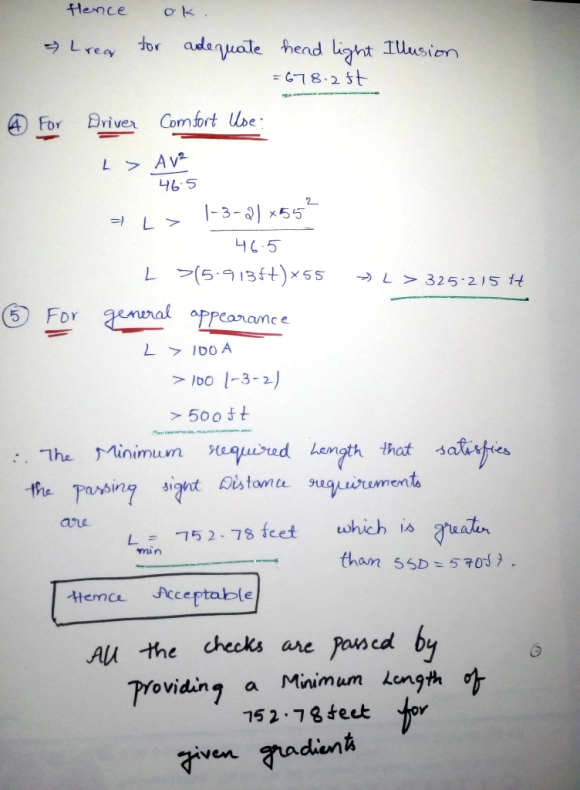 Hence ok.
⇒ L req for adequate head light Illusion
= 678.2 ft
④ For Driver Comfort Use:
L > AV²/46.5
⇒ L > |-3-2| × 55²/46.5
L > (5.913ft) × 55 ⇒ L > 325.215 ft
⑤ For general appearance
L > 100 A
> 100 |-3-2|
> 500 ft
∴ The Minimum required Length that satisfies
the passing sight Distance requirements
are
L min = 752.78 feet which is greater
than SSD = 570ft.
Hence Acceptable
All the checks are passed by
providing a Minimum Length of
752.78 feet for
given gradients